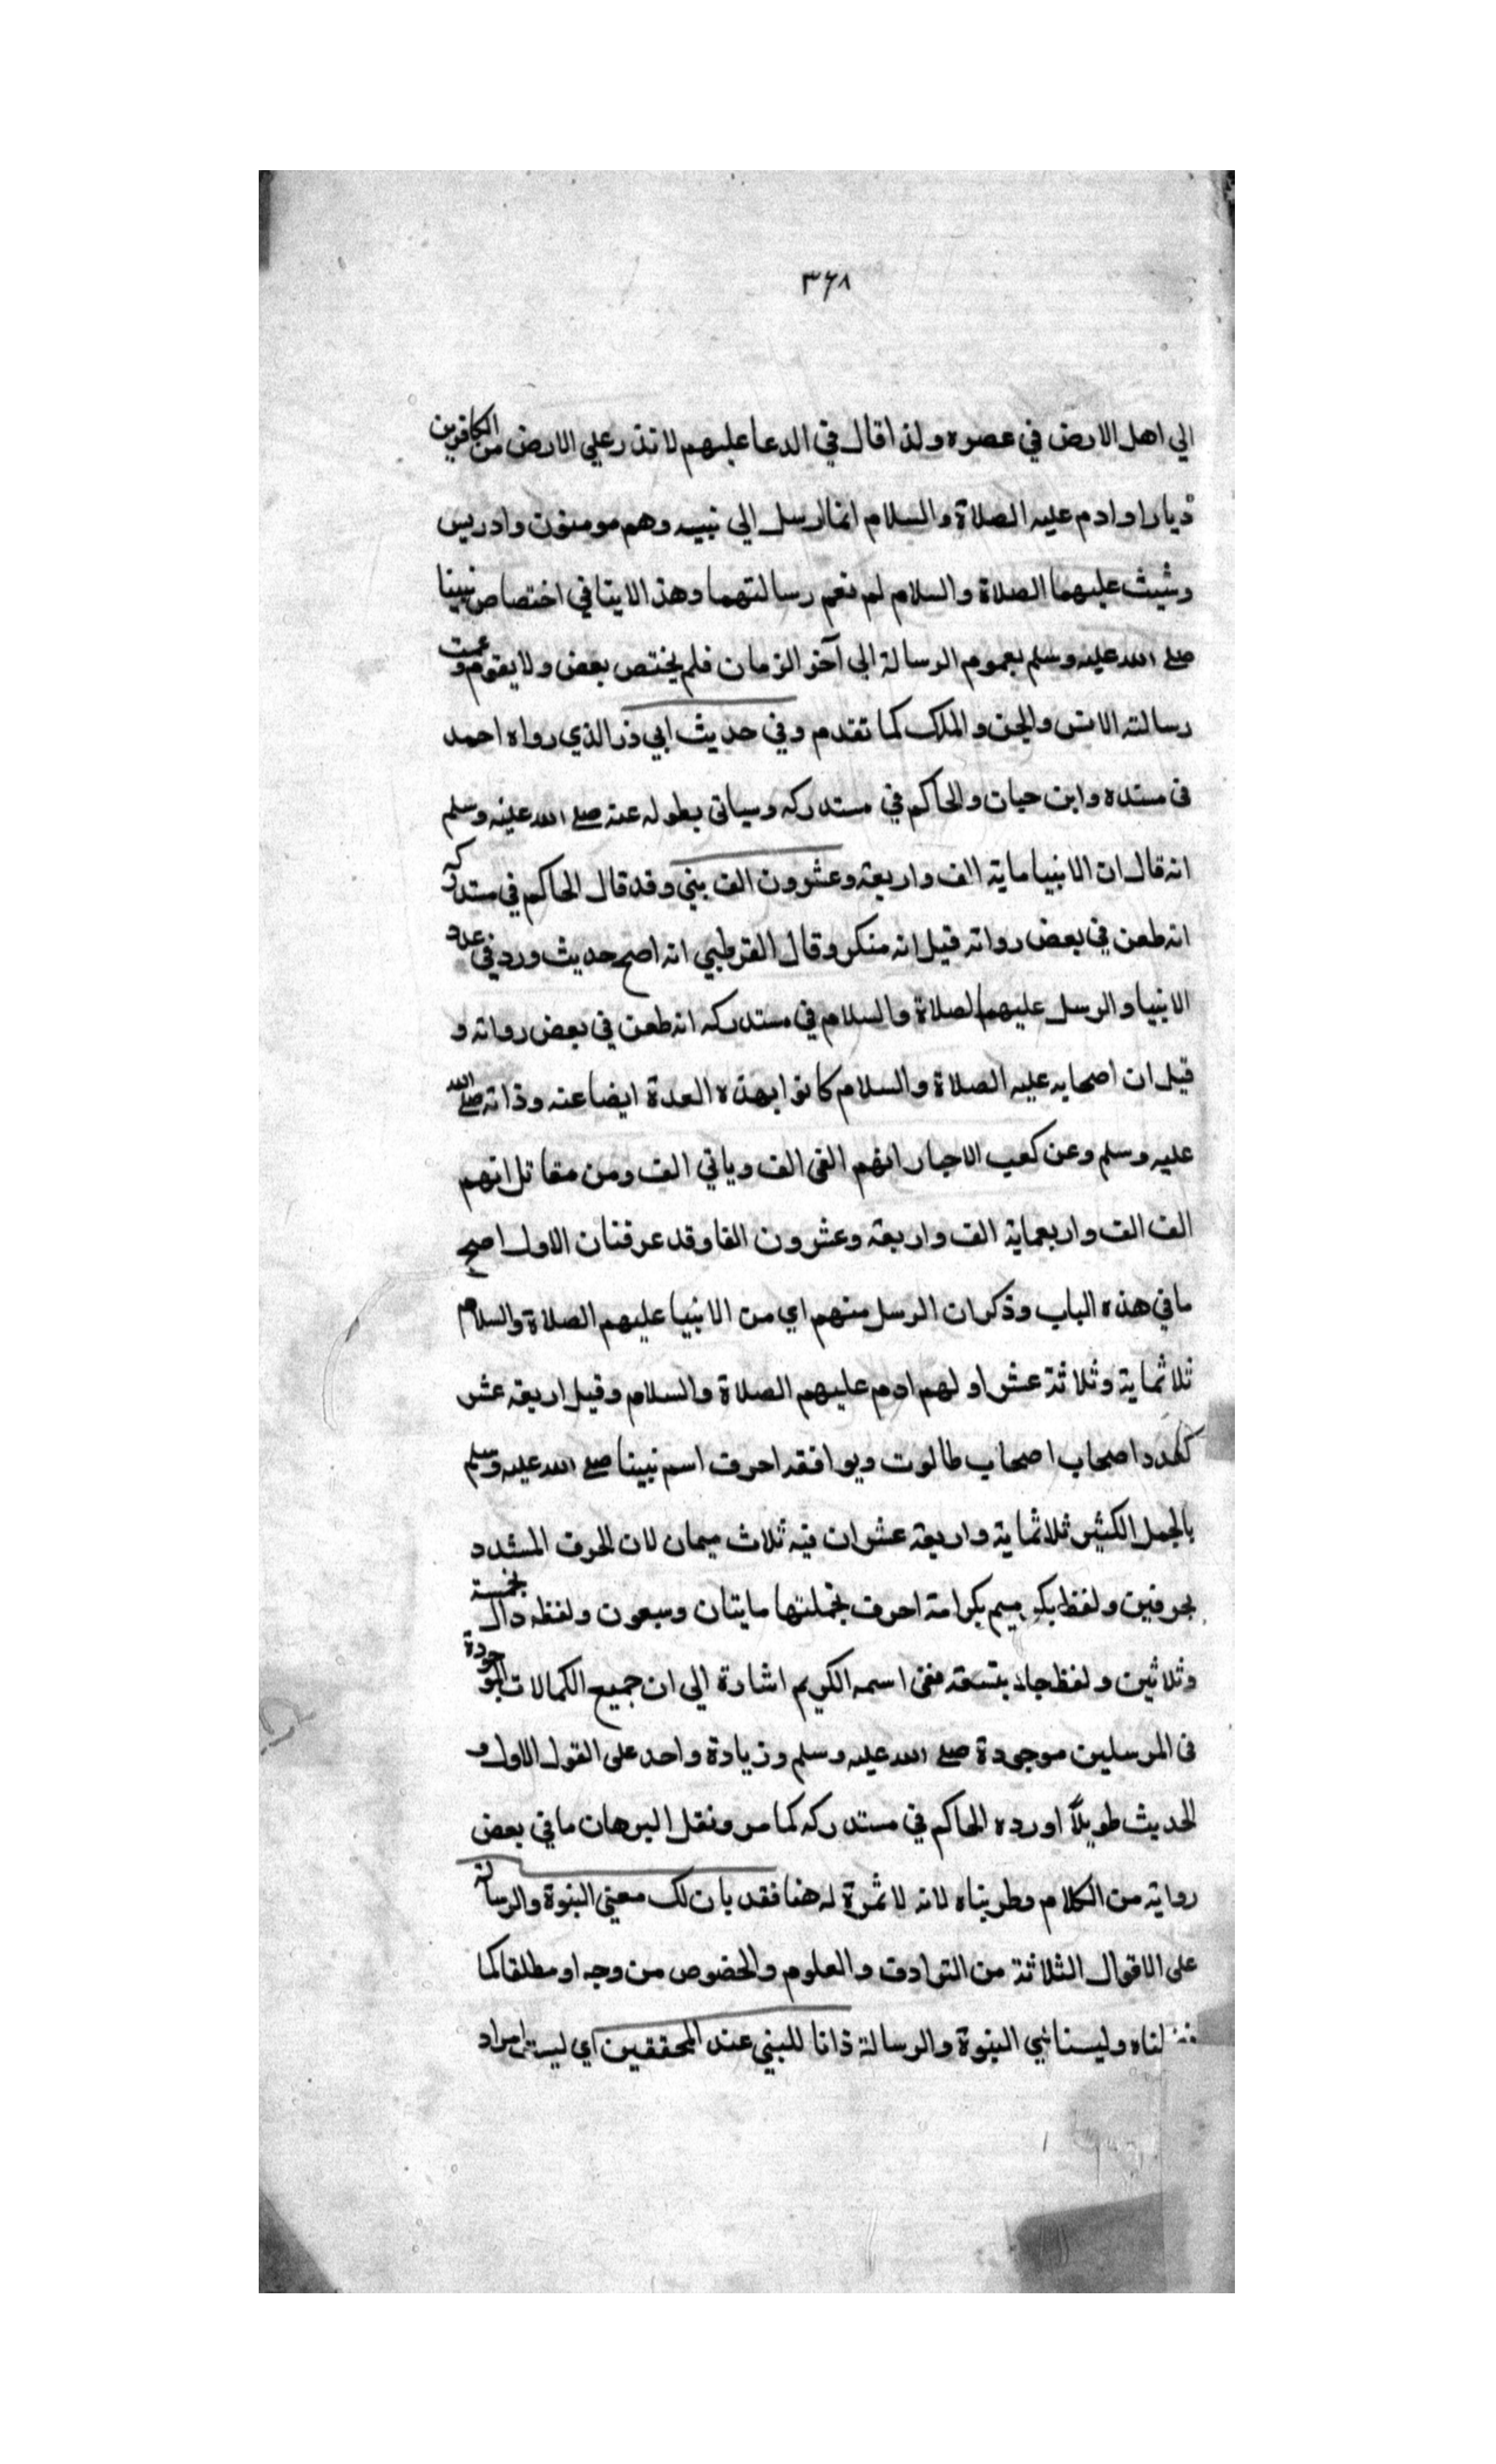 ٣٦٨
الي اهل الارض في عصره ولذا قال في الدعا عليهم لا تذر علي الارض من الكافرين
ديارا وادم عليه الصلاة والسلام انما ارسل الي نبيه وهم مومنون وادريس
وشيث عليهما الصلاة والسلام لم تعم رسالتهما وهذا لاينافي اختصاص نبينا
صلي الله عليه وسلم بعموم الرسالة الي آخر الزمان فلم يختص بعض ولا بقوم وعمت
رسالته الانس والجن والملك كما تقدم وفي حديث ابي ذر الذي رواه احمد
في مسنده وابن حبان والحاكم في مستدركه وسياتي بطوله عنه صلي الله عليه وسلم
انه قال ان الانبيا ماية الف واربعة وعشرون الف نبي وقد قال الحاكم في مستدركه
انه طعن في بعض رواته قيل انه منكر وقال القرطبي انه اصح حديث ورد في عدد
الانبيا والرسل عليهم الصلاة والسلام في مستدركه انه طعن في بعض رواته و
قيل ان اصحابه عليه الصلاة والسلام كانوا بهذه العدة ايضا عنه وذاته صلي الله
عليه وسلم وعن كعب الاحبار انهم الفي الف وياتي الف ومن مقاتل انهم
الف الف واربعماية الف واربعة وعشرون الفا وقد عرفنان الاول اصح
ما في هذه الباب وذكر ان الرسل منهم اي من الانبيا عليهم الصلاة والسلام
ثلاثماية وثلاثة عشر اولهم ادم عليهم الصلاة والسلام وقيل اربعة عشر
كعدد اصحاب اصحاب طالوت ويوافقه احرف اسم نبينا صلي الله عليه وسلم
بالجمل الكثير ثلاثماية واربعة عشر ان فيه ثلاث ميمان لان الحرف المشدد
بحرفين ولفظ ميم احرف فجملتها مايتان وسبعون ولفظه دال بخمسة
وثلاثين ولفظ حا بتسعة ففي اسمه الكريم اشارة الي ان جميع الكمالات الموجودة
في المرسلين موجودة صلي الله عليه وسلم وزيادة واحد على القول الاول و
الحديث طويلا اورده الحاكم في مستدركه كما مر ونقل البرهان ما في بعض
رواية من الكلام وطويناه لانه لا ثمرة له هنا فقد بان لك معني النبوة والرسالة
على الاقوال الثلاثة من الترادف والعلوم والخصوص من وجه او مطلقا كما
لناه وليسنا نبي النبوة والرسالة ذاتا للنبي عند المحققين اي ليست امراد